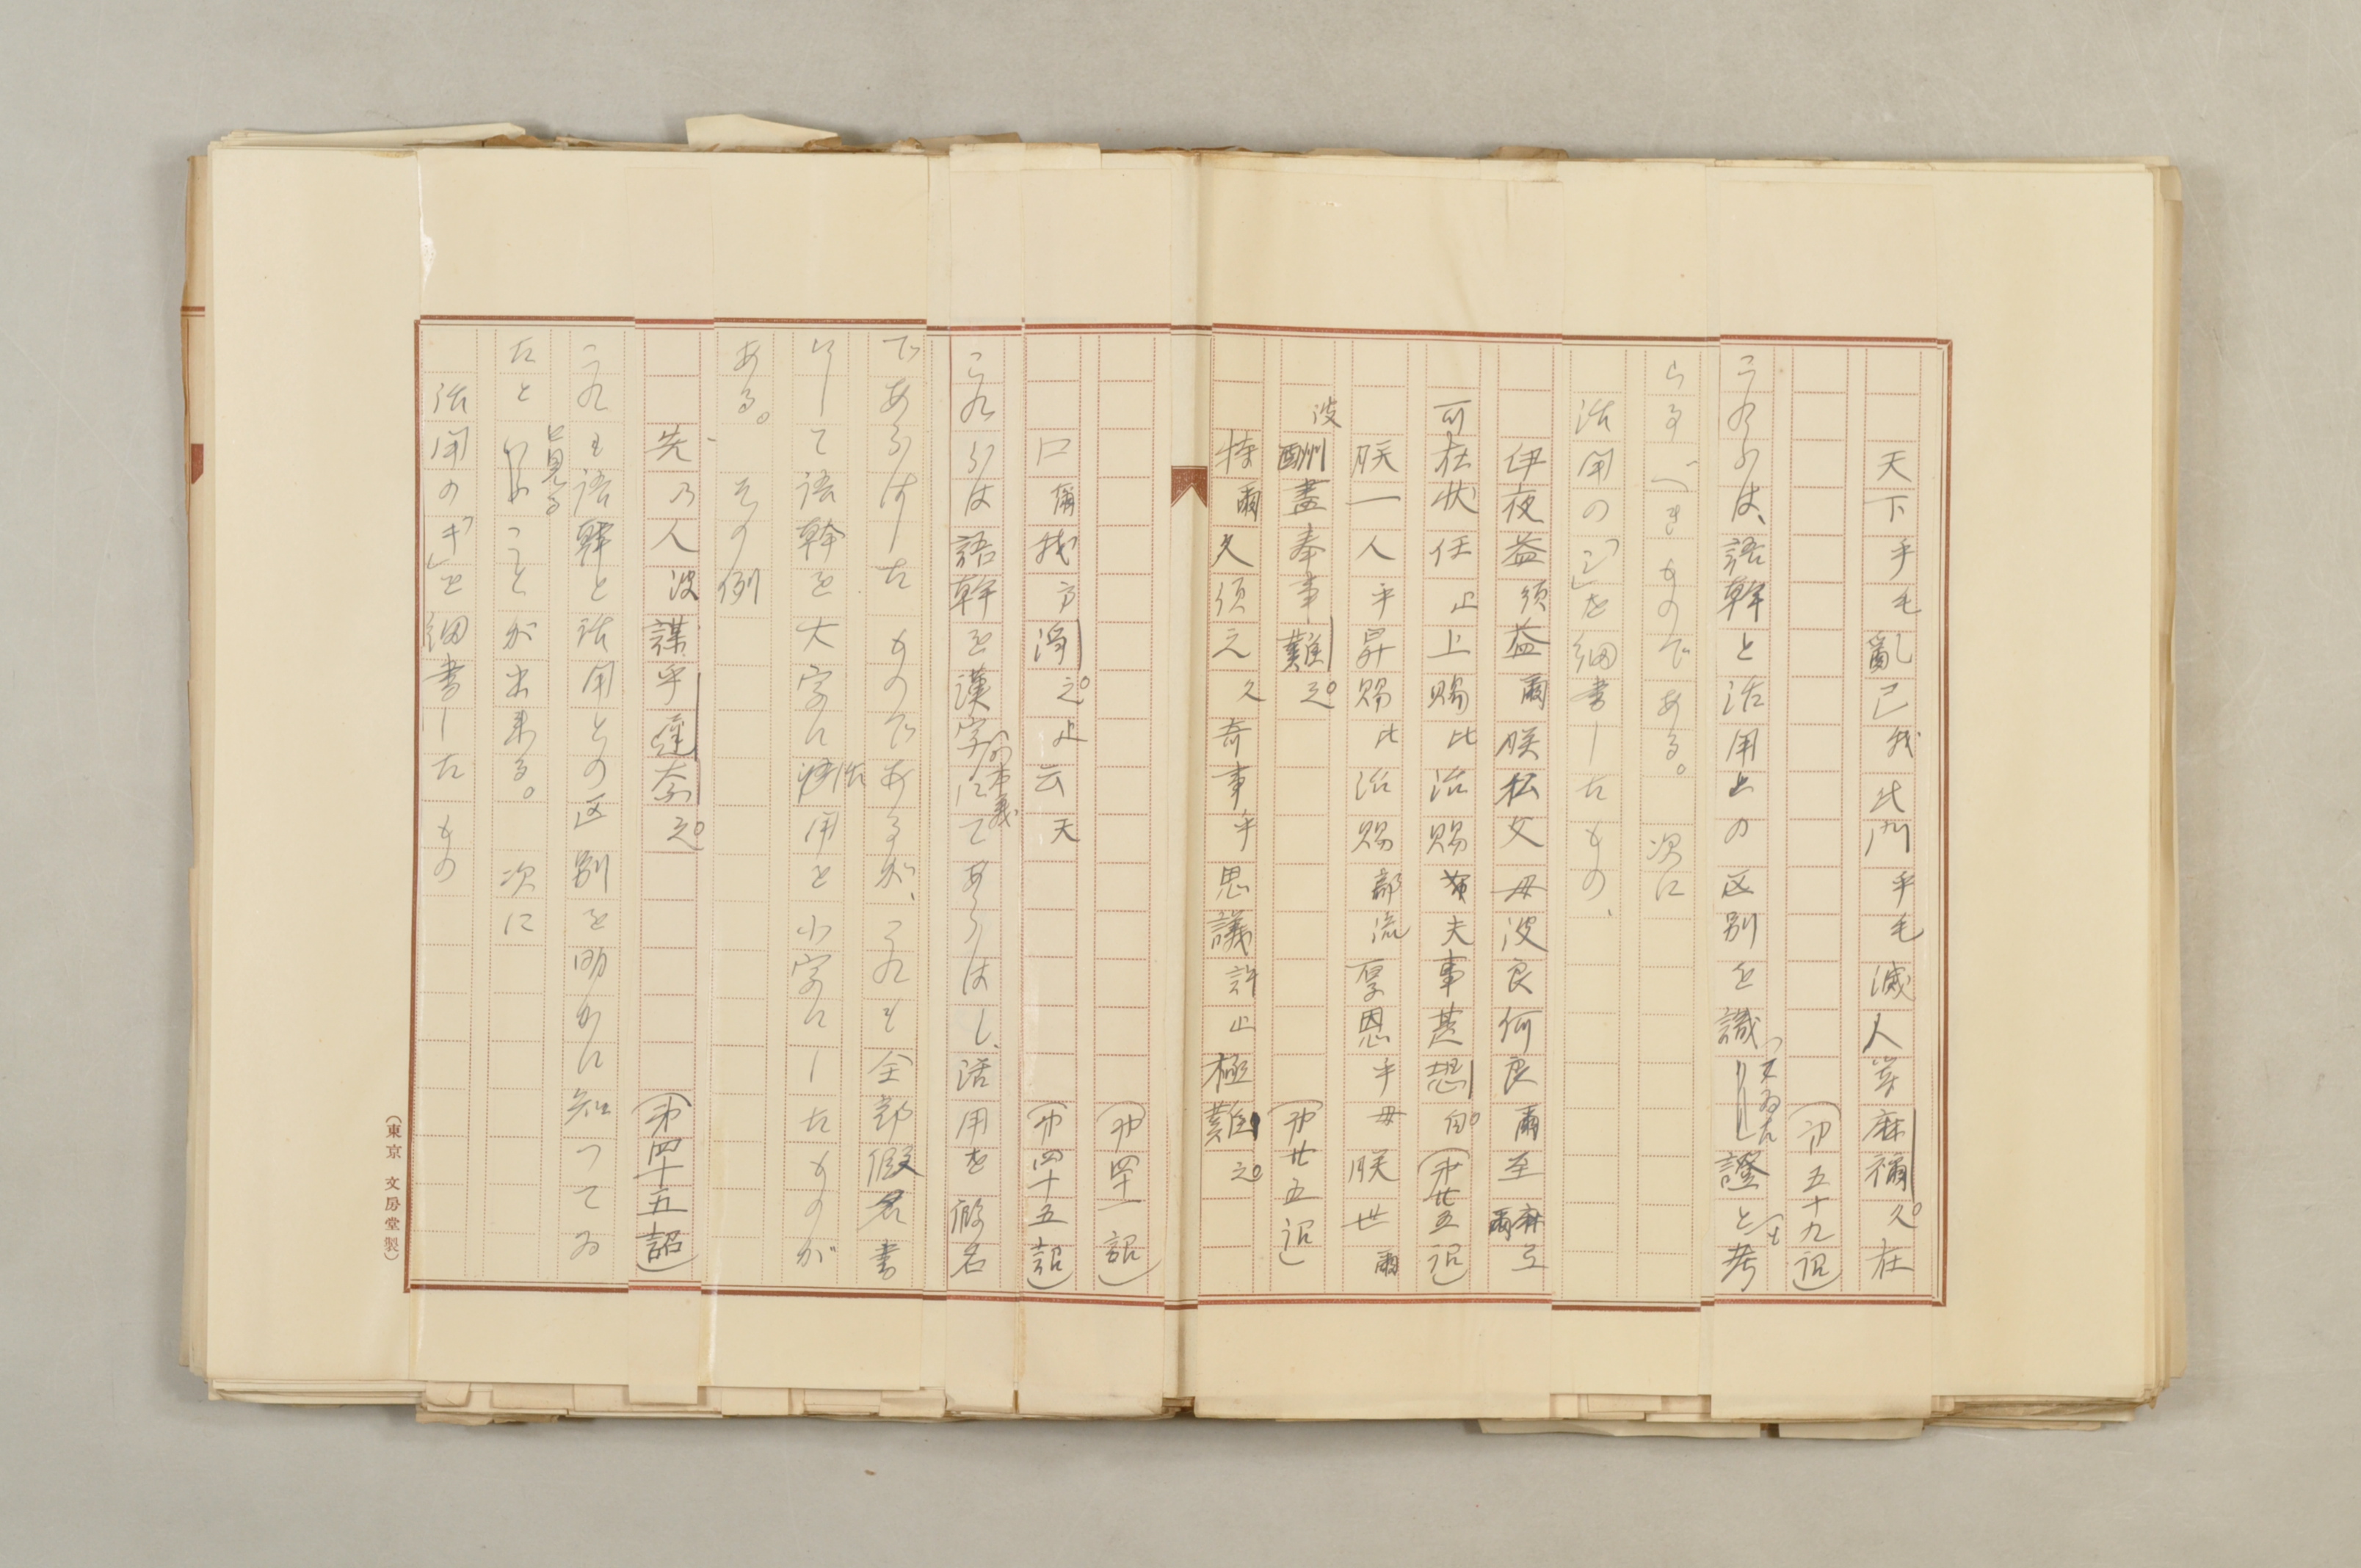 天下乎毛亂己我此門乎毛滅人等麻禰久在
(第五十九詔)
これらは、語幹と活用との区別を識つてゐた證とも考
らるべきものである。次に
活用の「シ」を細書したもの、
伊夜益須益爾朕私父母波良何良爾至麻弖爾
可在状任止上賜比治賜夫事甚恐自(第廿五詔)
朕一人乎昇賜比治賜部流厚恩乎母朕世爾
波酬盡奉事難之(第廿五詔)
特爾久須之久奇事乎思議許止極難之
(第四十一詔)
口爾我方淨之止云天(第四十五詔)
これらは語幹を漢字の本義にてあらはし、活用を假名
であらはしたものであるが、これも全部假名書
にして語幹を大字に活用を小字にしたものが
ある。その例
先乃人波謀乎遲奈之(第四十五詔)
これも語幹と活用との区別を明かに知つてゐ
たと見ることが出来る。次に
活用の「キ」を細書したもの
(東京 文房堂製)